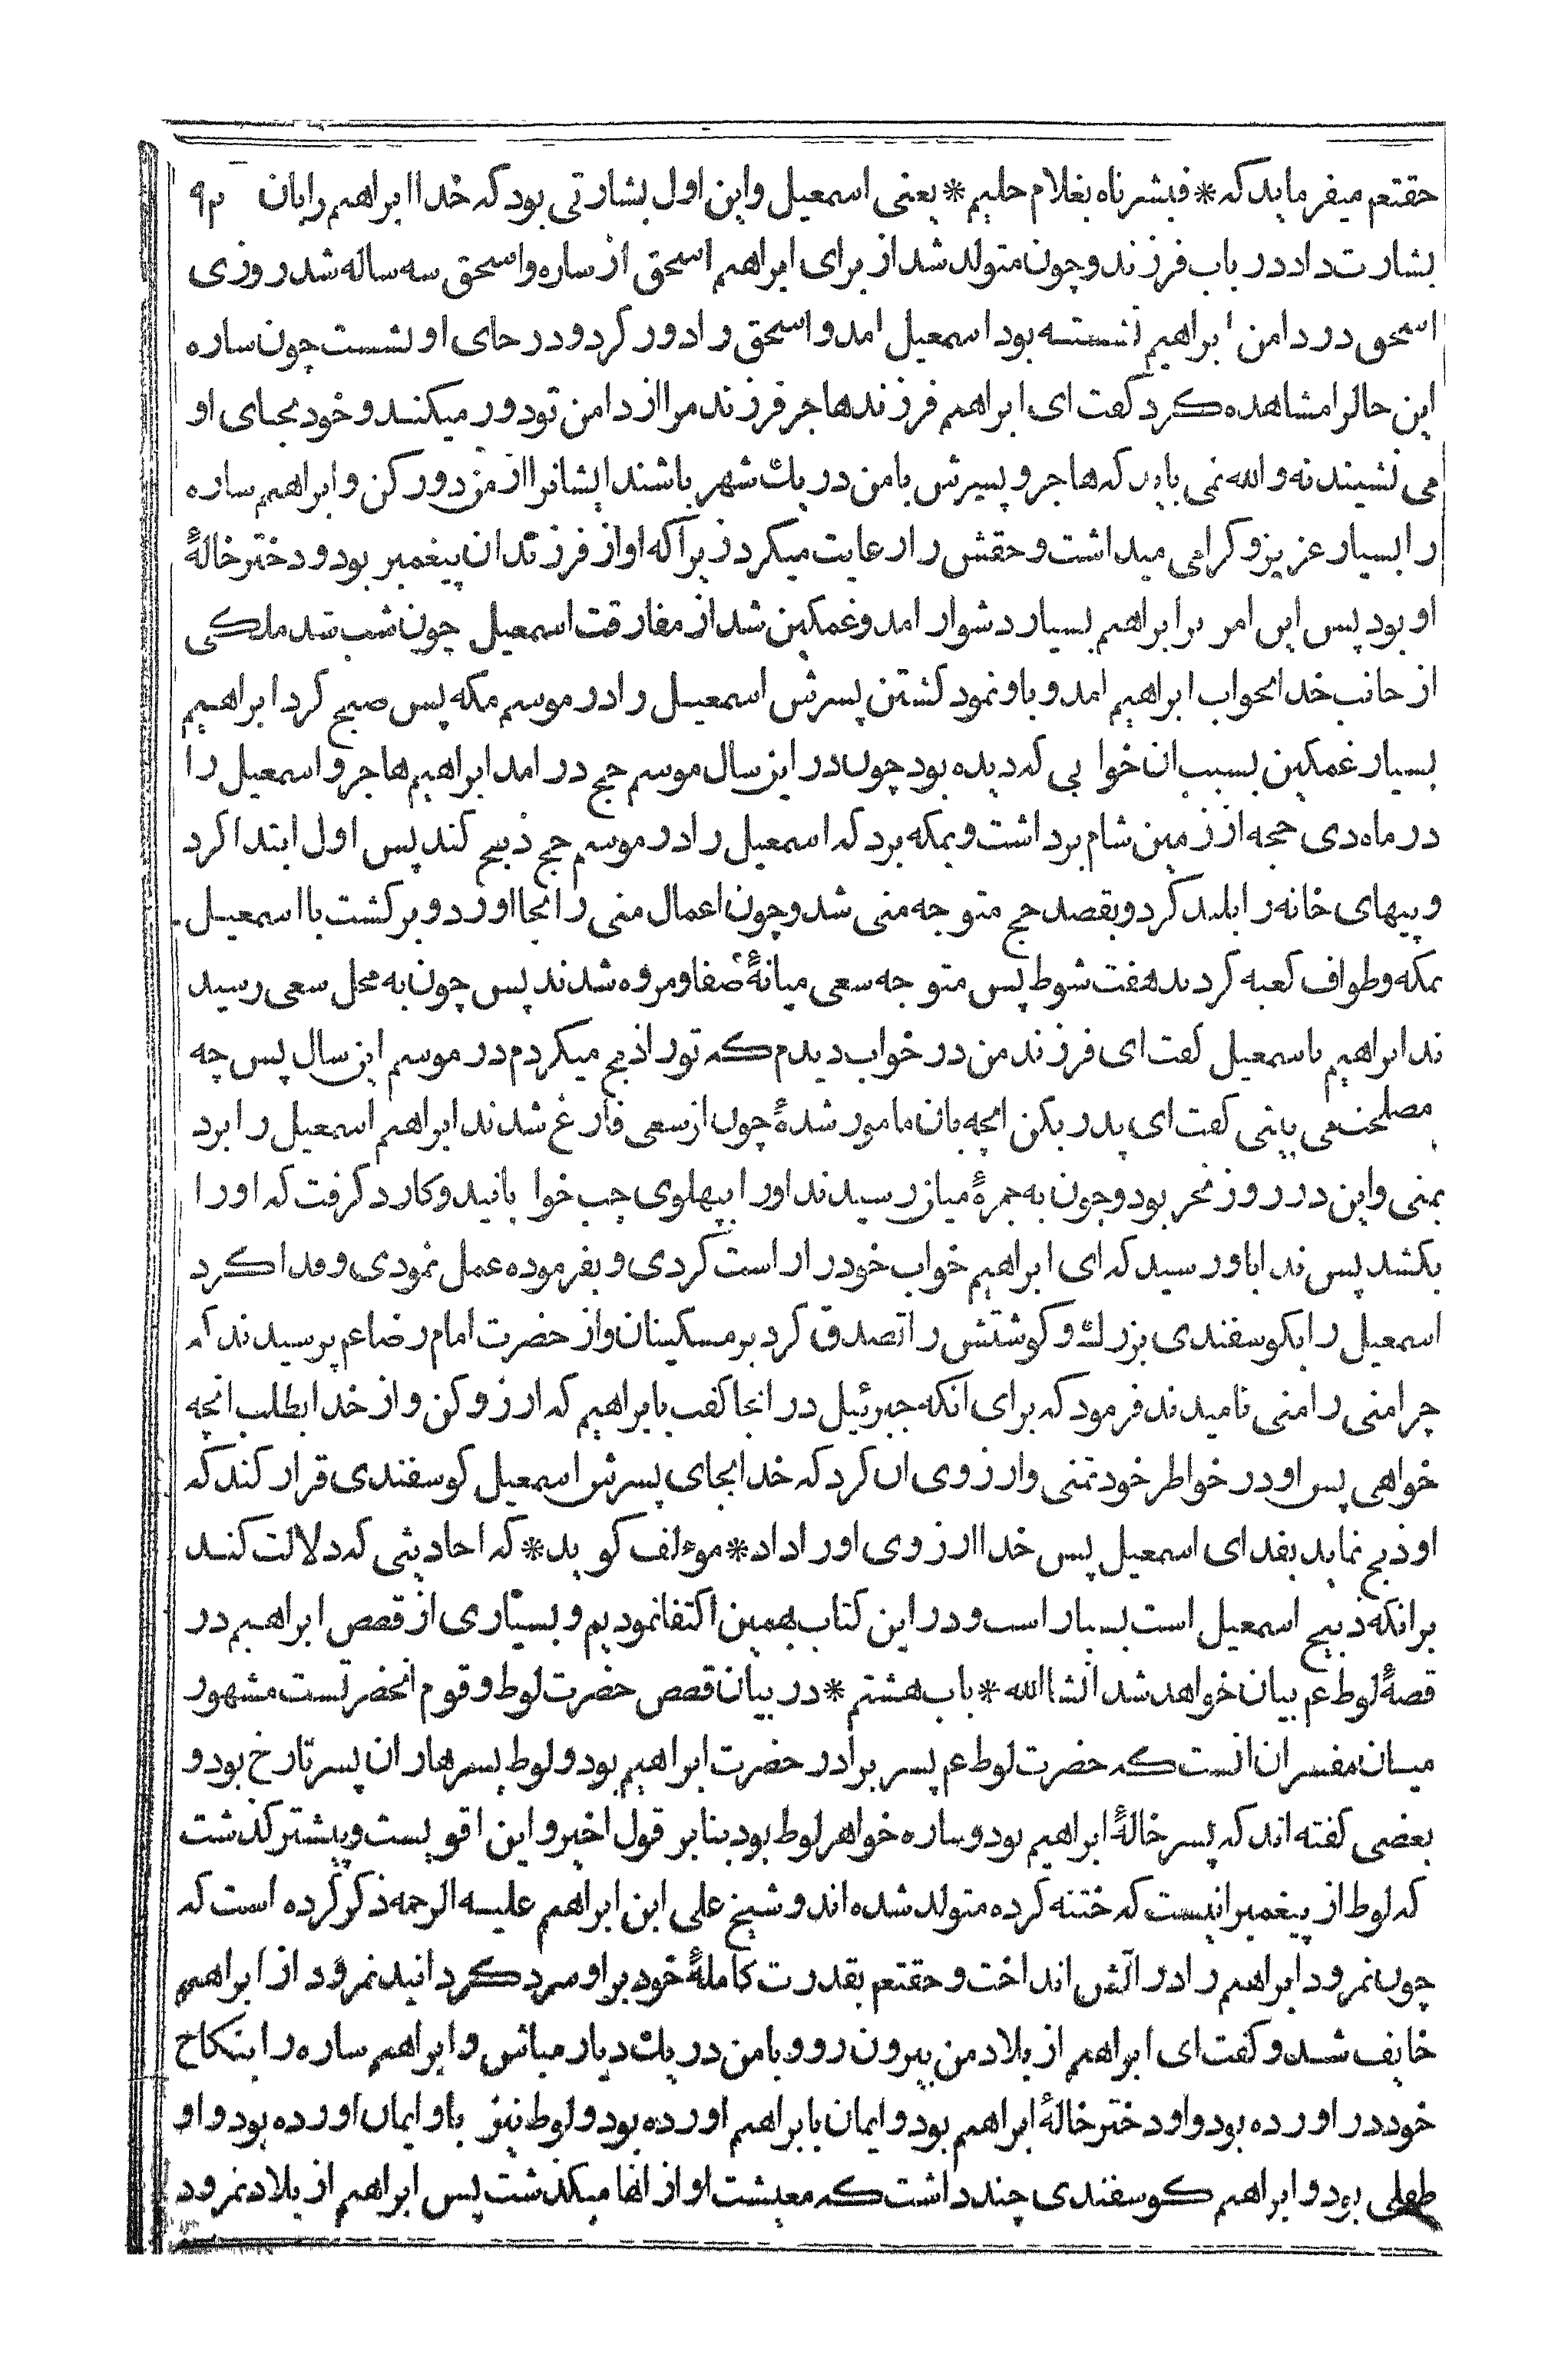 حقتعم میفرماید که * فبشرناه بغلام حلیم * یعنی اسمعیل واین اول بشارتی بود که خدا ابراهیم رابان
بشارت داد در باب فرزند وچون متولد شد از برای ابراهیم اسحق از ساره واسحق سه ساله شد روزی
اسحق در دامن ابراهیم نشسته بود اسمعیل امد واسحق را دور کرد ودر جای او نشست چون ساره
این حالرا مشاهده کرد کفت ای ابراهیم فرزند هاجر فرزند مرا از دامن تو دور میکند وخود بجای او
می نشیند نه والله نمی باید که هاجر وپسرش با من در یك شهر باشند ایشانرا از من دور کن وابراهیم ساره
را بسیار عزیز وکرامی میداشت وحقش را رعایت میکرد زیراکه او از فرزندان پیغمبر بود ودختر خالهٔ
او بود پس این امر بر ابراهیم بسیار دشوار امد وغمکین شد از مفارقت اسمعیل چون شب شد ملکی
از جانب خدا بخواب ابراهیم امد وباو نمود کشتن پسرش اسمعیل را در موسم مکه پس صبح کرد ابراهیم
بسیار غمکین بسبب ان خوابی که دیده بود چون در این سال موسم حج در امد ابراهیم هاجر واسمعیل را
در ماه ذی حجه از زمین شام برداشت وبمکه برد که اسمعیل را در موسم حج ذبیح کند پس اول ابتدا کرد
وپیهای خانه را بلند کرد وبقصد حج متوجه منی شد وچون اعمال منی را بجا اورد وبرکشت با اسمعیل
بمکه وطواف کعبه کردند هفت شوط پس متوجه سعی میانهٔ صفا ومروه شدند پس چون به محل سعی رسید
ند ابراهیم باسمعیل کفت ای فرزند من در خواب دیدم که تورا ذبح میکردم در موسم این سال پس چه
مصلحت می بینی کفت ای پدر بکن انچه بان مامور شدهٔ چون از سعی فارغ شدند ابراهیم اسمعیل را برد
بمنی واین در روز نحر بود وچون به جمرهٔ میان رسیدند اورا بپهلوی چپ خوابانید وکارد کرفت که اورا
بکشد پس ندا باو رسید که ای ابراهیم خواب خود را راست کردی وبفرموده عمل نمودی وفدا کرد
اسمعیل را بکوسفندی بزرك وکوشتش را تصدق کرد بر مسکینان واز حضرت امام رضا عم پرسیدند که
چرا منی را منی نامیدند فرمود که برای انکه جبرئیل در انجا کفت بابراهیم که ارزو کن واز خدا بطلب انچه
خواهی پس او در خواطر خود تمنی وارزوی ان کرد که خدا بجای پسرش اسمعیل کوسفندی قرار کند که
او ذبح نماید بفدای اسمعیل پس خدا ارزوی اورا داد * موءلف کوید * که احادیثی که دلالت کند
برانکه ذبیح اسمعیل است بسیار است ودر این کتاب بهمین اکتفا نمودیم وبسیاری از قصص ابراهیم در
قصهٔ لوط عم بیان خواهد شد انشاالله * باب هشتم * در بیان قصص حضرت لوط وقوم انحضرتست مشهور
میان مفسران انست که حضرت لوط عم پسر برادر حضرت ابراهیم بود ولوط پسر هاران پسر تارخ بود و
بعضی کفته اند که پسر خالهٔ ابراهیم بود وساره خواهر لوط بود بنابر قول اخیر واین اقویست وپیشتر کذشت
که لوط از پیغمبرانیست که ختنه کرده متولد شده اند وشیخ علی ابن ابراهیم علیه الرحمه ذکر کرده است که
چون نمرود ابراهیم را در اتش انداخت وحقتعم بقدرت کاملهٔ خود بر او سرد کردانید نمرود از ابراهیم
خایف شد وکفت ای ابراهیم از بلاد من بیرون رو وبا من در یك دیار مباش وابراهیم ساره را بنکاح
خود در اورده بود واو دختر خالهٔ ابراهیم بود وایمان بابراهیم اورده بود ولوط نیز باو ایمان اورده بود واو
طفلی بود وابراهیم کوسفندی چند داشت که معیشت او از انها میکذشت پس ابراهیم از بلاد نمرود